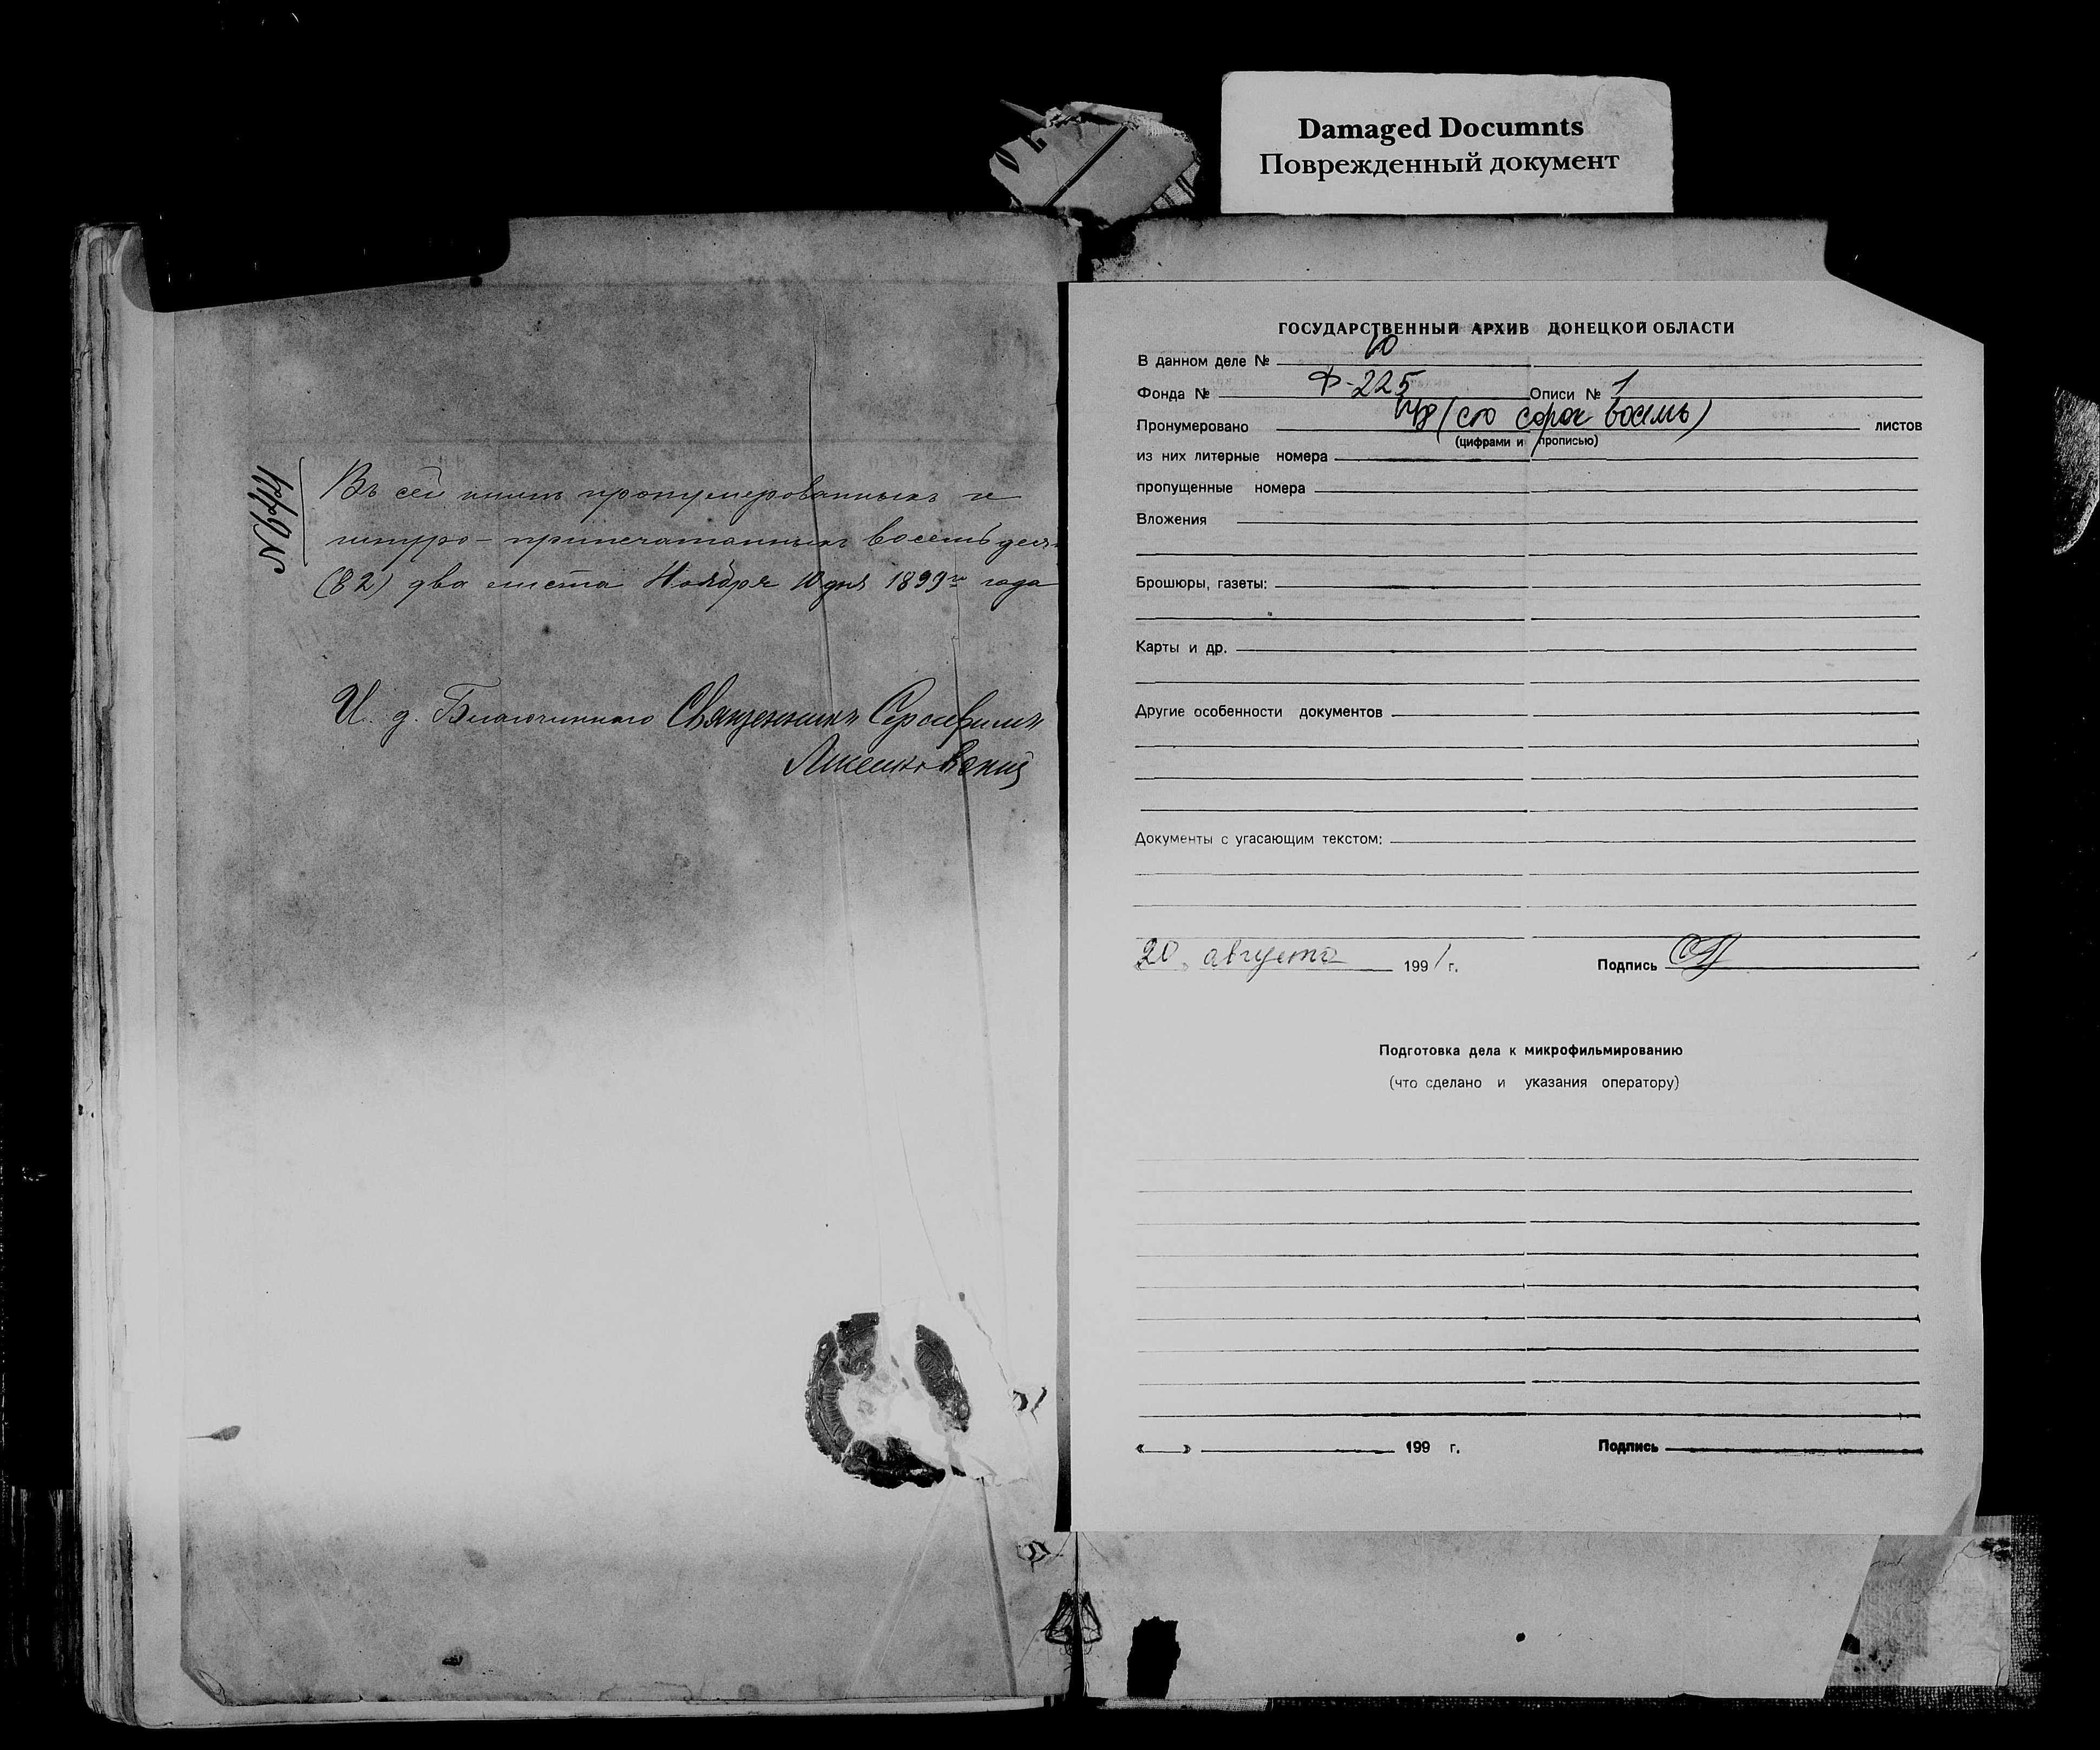 Damaged Documnts
Поврежденный документ
№ 644
Въ сей книгѣ пронумерованныхъ и
шнуро-припечатанныхъ восемьдеся
(82) два листа Ноября 10 дня 1899го года
И. д. Благочиннаго Священникъ Серапионъ
ГОСУДАРСТВЕННЫЙ АРХИВ ДОНЕЦКОЙ ОБЛАСТИ
В данном деле № 10
Фонда № Ф-225 Описи № 1
Пронумеровано 148 (сто сорок восемь) листов
(цифрами и прописью)
из них литерные номера
пропущенные номера
Вложения
Брошюры, газеты:
Карты и др.
Другие особенности документов
Документы с угасающим текстом:
20 августа 1991 г. Подпись
Подготовка дела к микрофильмированию
(что сделано и указания оператору)
« » 199 г. Подпись